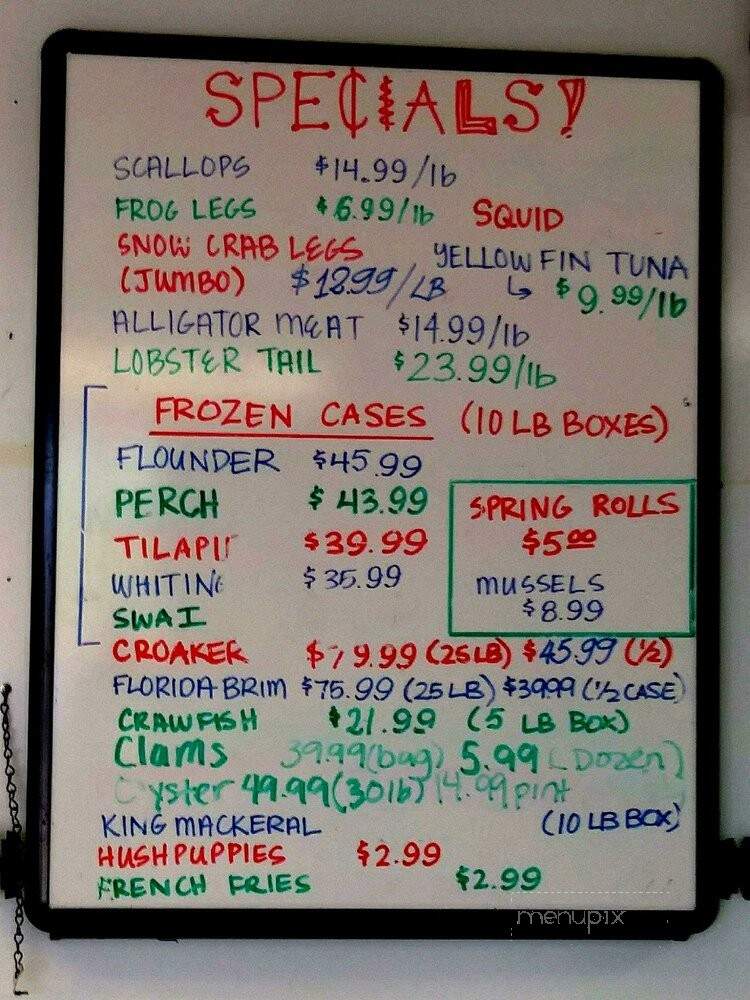 SPECIALS!
SCALLOPS $14.99/lb
FROG LEGS $6.99/lb SQUID
SNOW CRAB LEGS YELLOW FIN TUNA
(JUMBO) $12.99/LB ↳ $9.99/lb
ALLIGATOR MEAT $14.99/lb
LOBSTER TAIL $23.99/lb
FROZEN CASES (10 LB BOXES)
FLOUNDER $45.99
PERCH $43.99
TILAPI $39.99
WHITING $35.99
SWAI
SPRING ROLLS
$5.00
MUSSELS
$8.99
CROAKER $79.99 (25LB) $45.99 (1/2)
FLORIDA BRIM $75.99 (25 LB) $39.99 (1/2 CASE)
CRAWFISH $21.99 (5 LB BOX)
Clams 39.99(bag) 5.99 (Dozen)
Oyster 49.99(30lb) 14.99 pint
KING MACKERAL (10 LB BOX)
HUSHPUPPIES $2.99
FRENCH FRIES $2.99
menupix